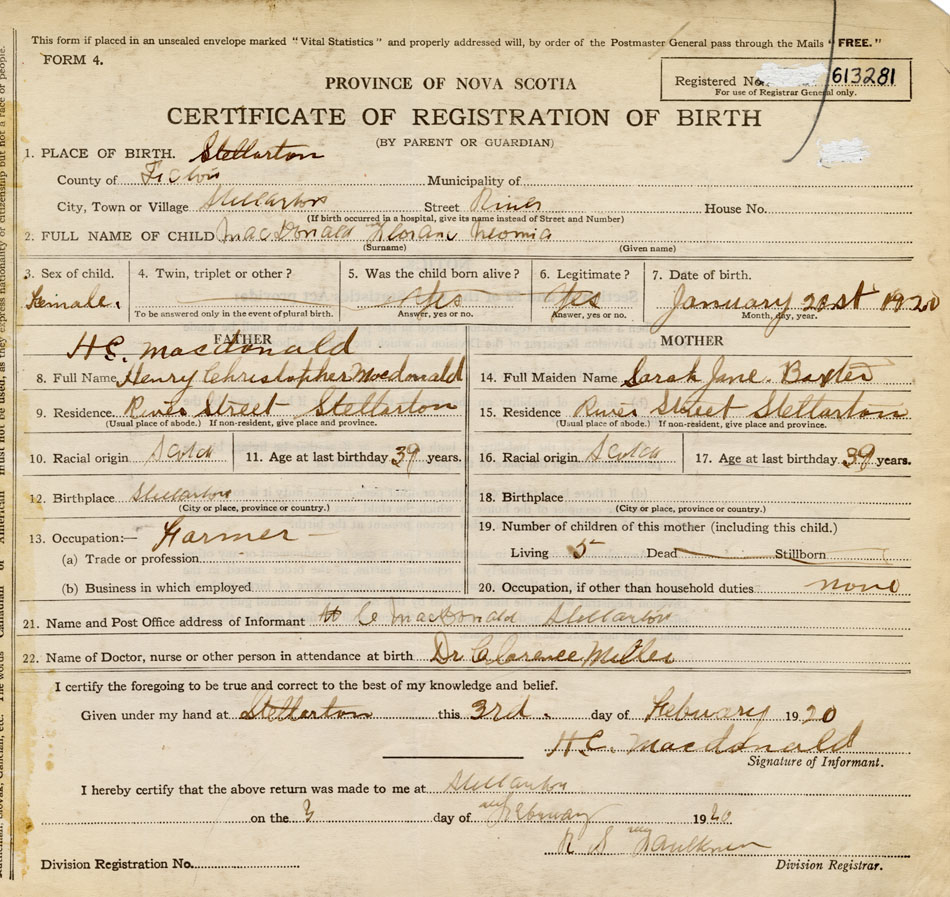 This form if placed in an unsealed envelope marked "Vital Statistics" and properly addressed will, by order of the Postmaster General pass through the Mails "FREE."
FORM 4.
PROVINCE OF NOVA SCOTIA
Registered No. 613281
For use of Registrar General only.
CERTIFICATE OF REGISTRATION OF BIRTH
(BY PARENT OR GUARDIAN)
1. PLACE OF BIRTH. Stellarton
County of Pictou Municipality of
City, Town or Village Stellarton Street River House No.
(If birth occurred in a hospital, give its name instead of Street and Number)
2. FULL NAME OF CHILD MacDonald Neomia
(Surname) (Given name)
3. Sex of child. 4. Twin, triplet or other? 5. Was the child born alive? 6. Legitimate? 7. Date of birth.
Female. Yes Yes January 21st 1920
To be answered only in the event of plural birth. Answer, yes or no. Answer, yes or no. Month, day, year.
H.C. Macdonald
FATHER MOTHER
8. Full Name Henry Christopher Macdonald 14. Full Maiden Name Sarah Jane. Baxter
9. Residence. River Street Stellarton 15. Residence River Street Stellarton
(Usual place of abode.) If non-resident, give place and province. (Usual place of abode.) If non-resident, give place and province.
10. Racial origin Scotch 11. Age at last birthday 39 years. 16. Racial origin Scotch 17. Age at last birthday 39 years.
12. Birthplace Stellarton 18. Birthplace
(City or place, province or country.) (City or place, province or country.)
13. Occupation:— Farmer 19. Number of children of this mother (including this child.)
(a) Trade or profession Living 5 Dead Stillborn
(b) Business in which employed 20. Occupation, if other than household duties none
21. Name and Post Office address of Informant H C MacDonald Stellarton
22. Name of Doctor, nurse or other person in attendance at birth Dr Clarence Miller
I certify the foregoing to be true and correct to the best of my knowledge and belief.
Given under my hand at Stellarton this 3rd. day of Febuary 1920
H.C. Macdonald
Signature of Informant.
I hereby certify that the above return was made to me at Stellarton
on the 3 day of February 1920
R S Faulkner
Division Registration No. Division Registrar.